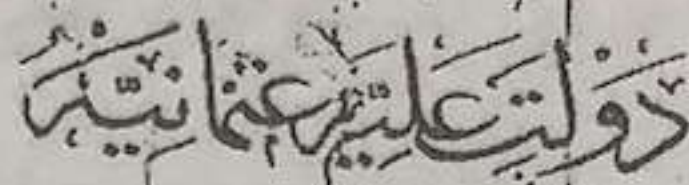 دَوْلَتِ عَلِيَّهٔ عُثْمَانِيَّه